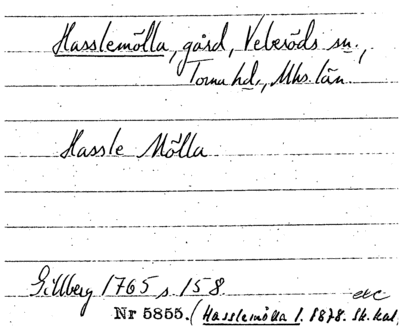 Hasslemölla, gård, Veberöds sn.,
Torna hd., Mhs. län.
Hassle Mölla
Gillberg 1765 s. 158.
exc
Nr 5855. (Hasslemölla l. 1878. Sk. kal.